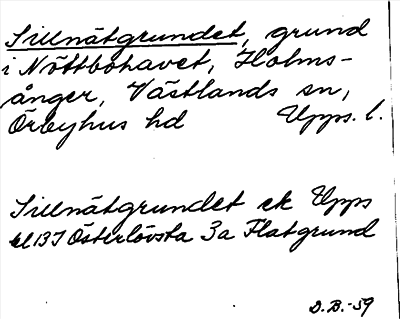 Sillnätgrundet, grund
i Nöttbohavet, Holms-
ånger, Västlands sn,
Örbyhus hd Upps. l.
Sillnätgrundet ek Upps
bl 137 Österlövsta 3a Flatgrund
D.B.-59